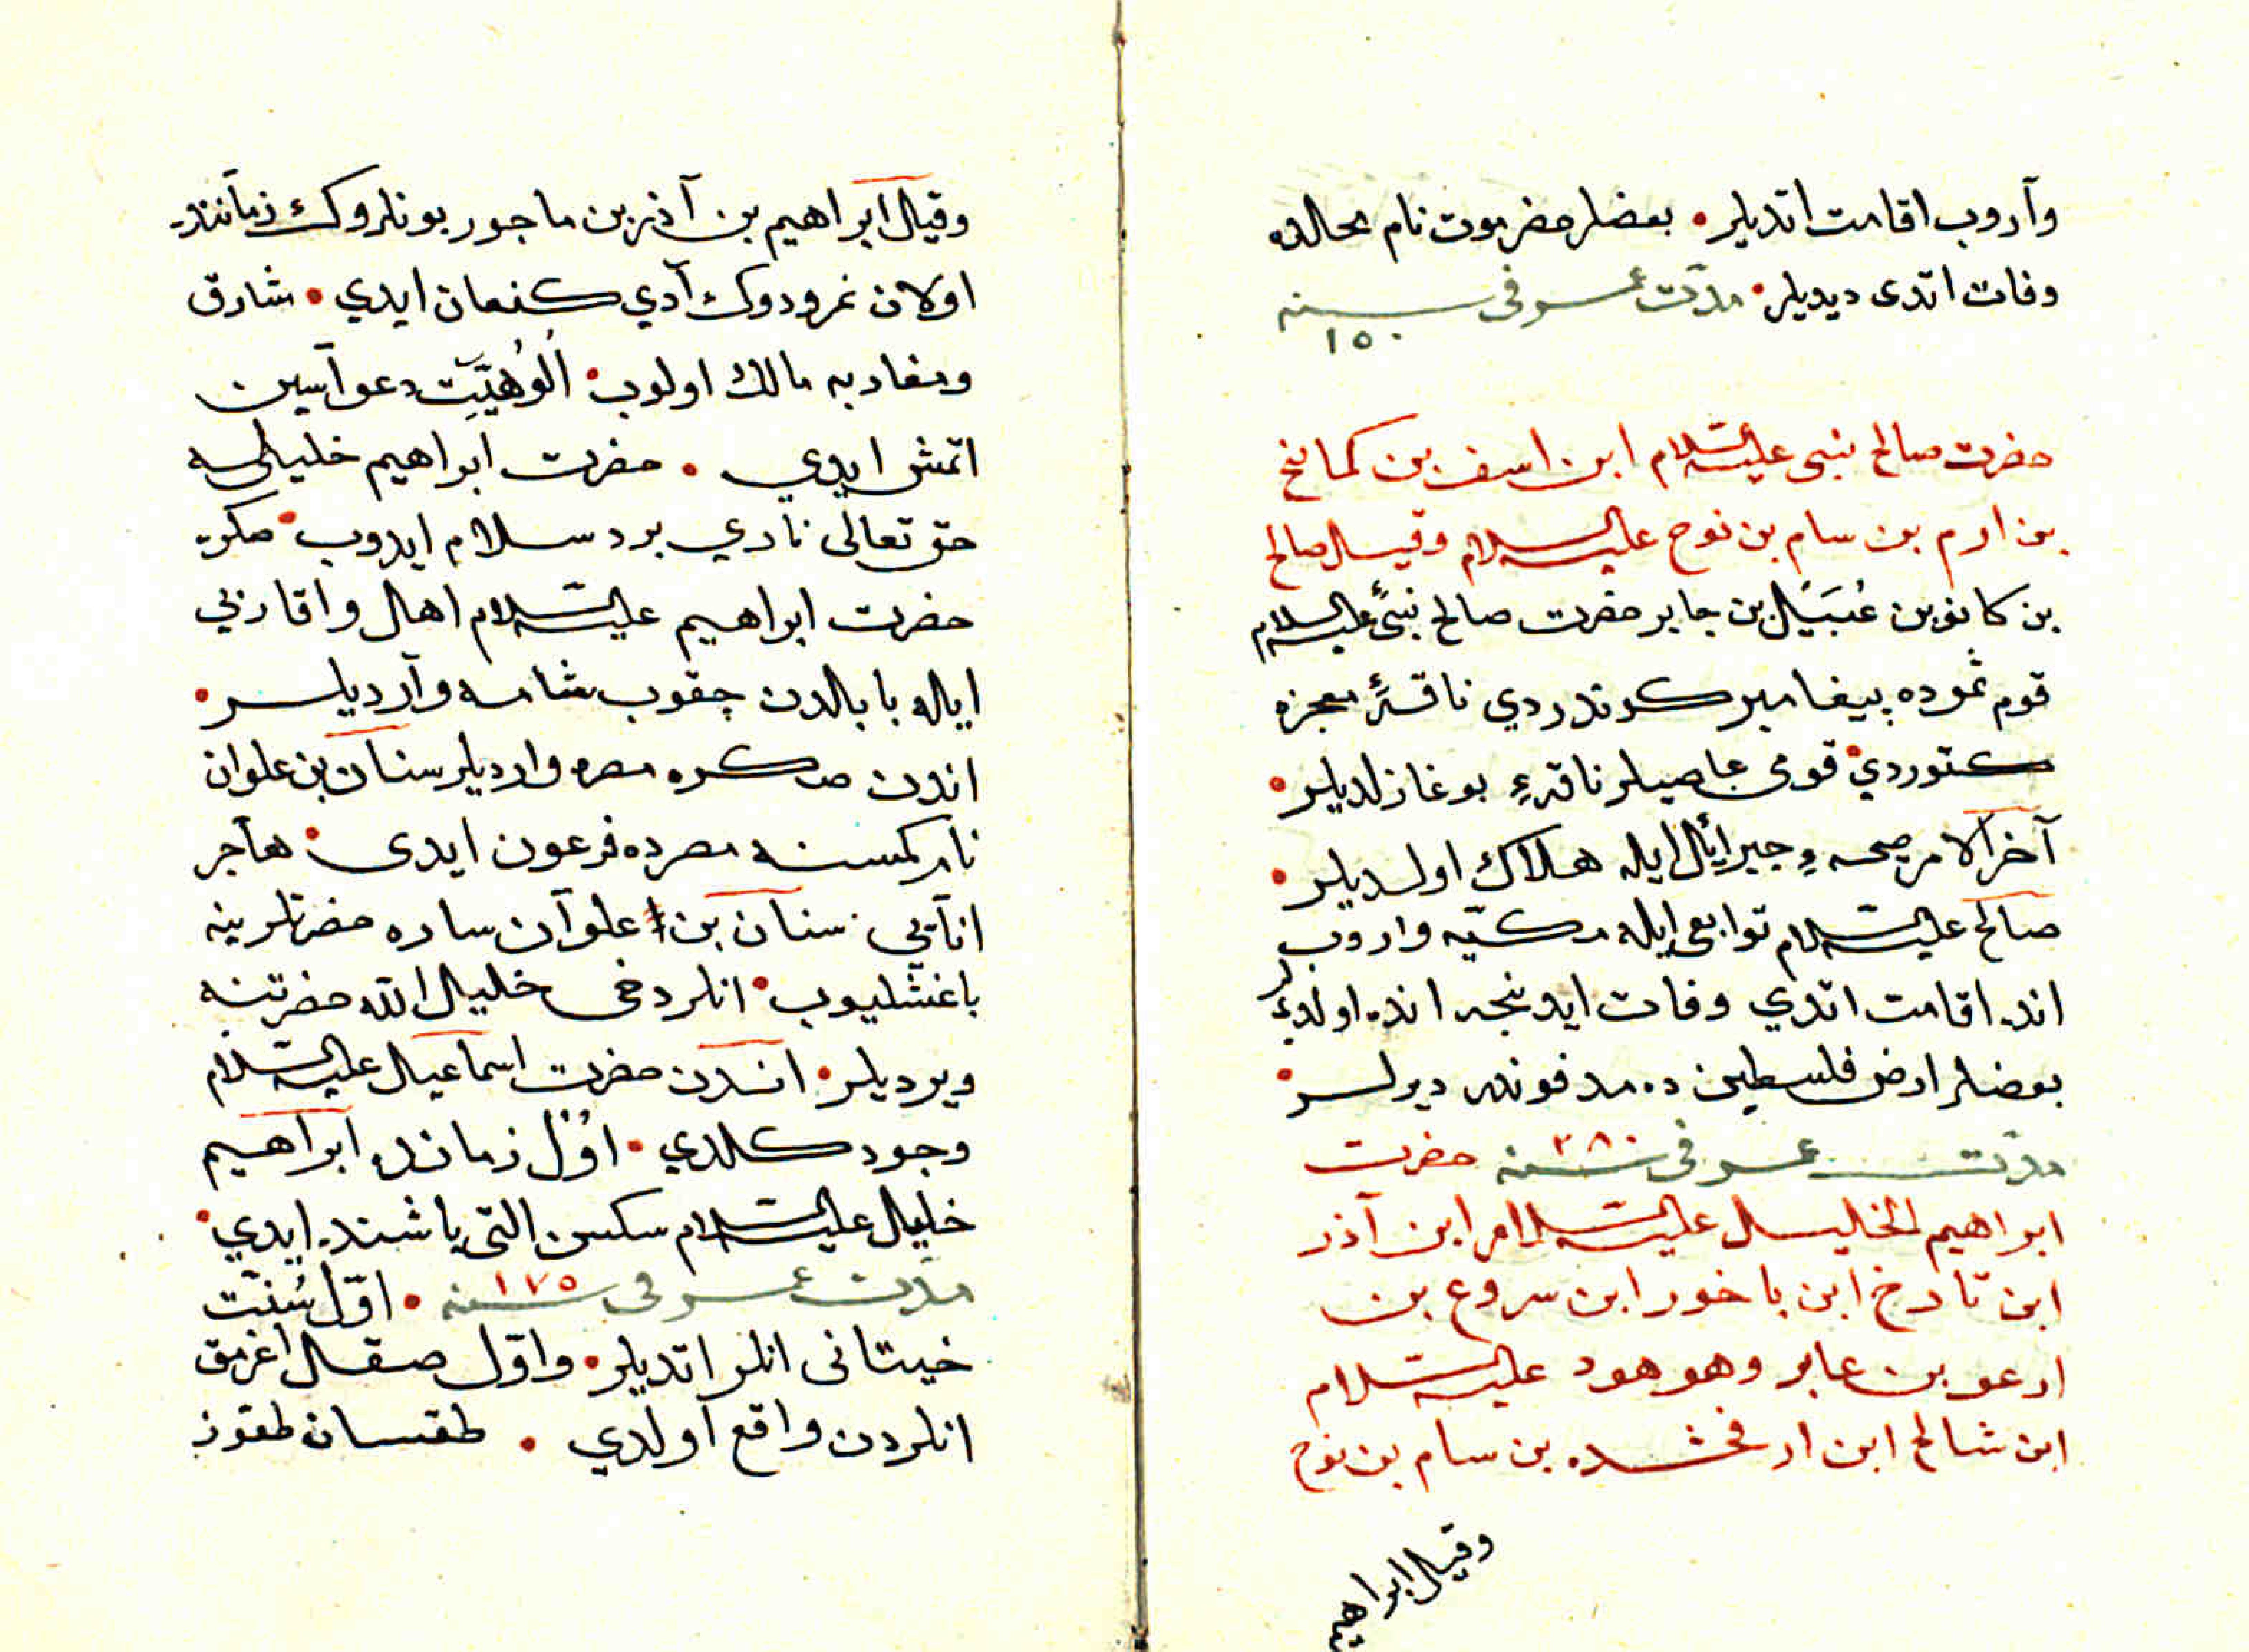 وآروب اقامت اتديلر • بعضلر حضرموت نام محالده
وفات اتدى ديديلر • مدّت عمر فى سنه
١٥٠
حضرت صالح نبى عليه السّلام ابن اسف بن كماشخ
بن ارم بن سام بن نوح عليه السلام وقيل صالح
بن كانوبن عُبَيَل بن جابر حضرت صالح نبىء عليه السلام
قوم ثموده پيغامبر كوندردي ناقهٔ معجزه
كتوردي • قومى عاصيلر ناقهءِ بوغازلديلر •
آخر الامر صيحهءِ جبرائل ايله هلاك اولديلر •
صالح عليه السّلام توابعى ايله مكّيه واروب
انده اقامت اتدي وفات ايدنجه انده اولديلر
بعضلر ارض فلسطين ده مدفوندر ديرلر •
مدّت عمر فى سنه ٢٨٠ حضرت
ابراهيم الخليل عليه السّلام ابن آذر
ابن تارخ ابن باخور ابن سروع بن
ارعو بن عابر وهو هود عليه السّلام
ابن شالح ابن ارفخشده بن سام بن نوح
وقيل ابراهيم
وقيل ابراهيم بن آذر بن ماجور بونلروك زماننده
اولان نمرودوك آدي كنعان ايدي • شارق
ومغاربه مالك اولوب • اُلُوهِيَّتِ دعواسين
اتمش ايدي • حضرت ابراهيم خليلمه
حق تعالى نارى برد سلام ايدوب • صكره
حضرت ابراهيم عليه السّلام اهل واقاربي
ايله بابلدن چقوب شامه وآرديلر •
اندن صكره مصره وارديلر سنان بن علوان
نام كمسنه مصرده فرعون ايدى • هاجر
انآيى سنان بن علوآن ساره حضرتلرينه
باغشليوب • انلر دخى خليل الله حضرتنه
ويرديلر • اندن حضرت اسماعيل عليه السّلام
وجود كلدي • اوّل زمانده ابراهيم
خليل عليه السّلام سكسن التى ياشنده ايدي •
مدّت عمر فى سنه ١٧٥ • اوّل سُنّت
خيتانى انلر اتديلر • واوّل صقل اغرمق
انلردن واقع آولدي • طقسان طقوز